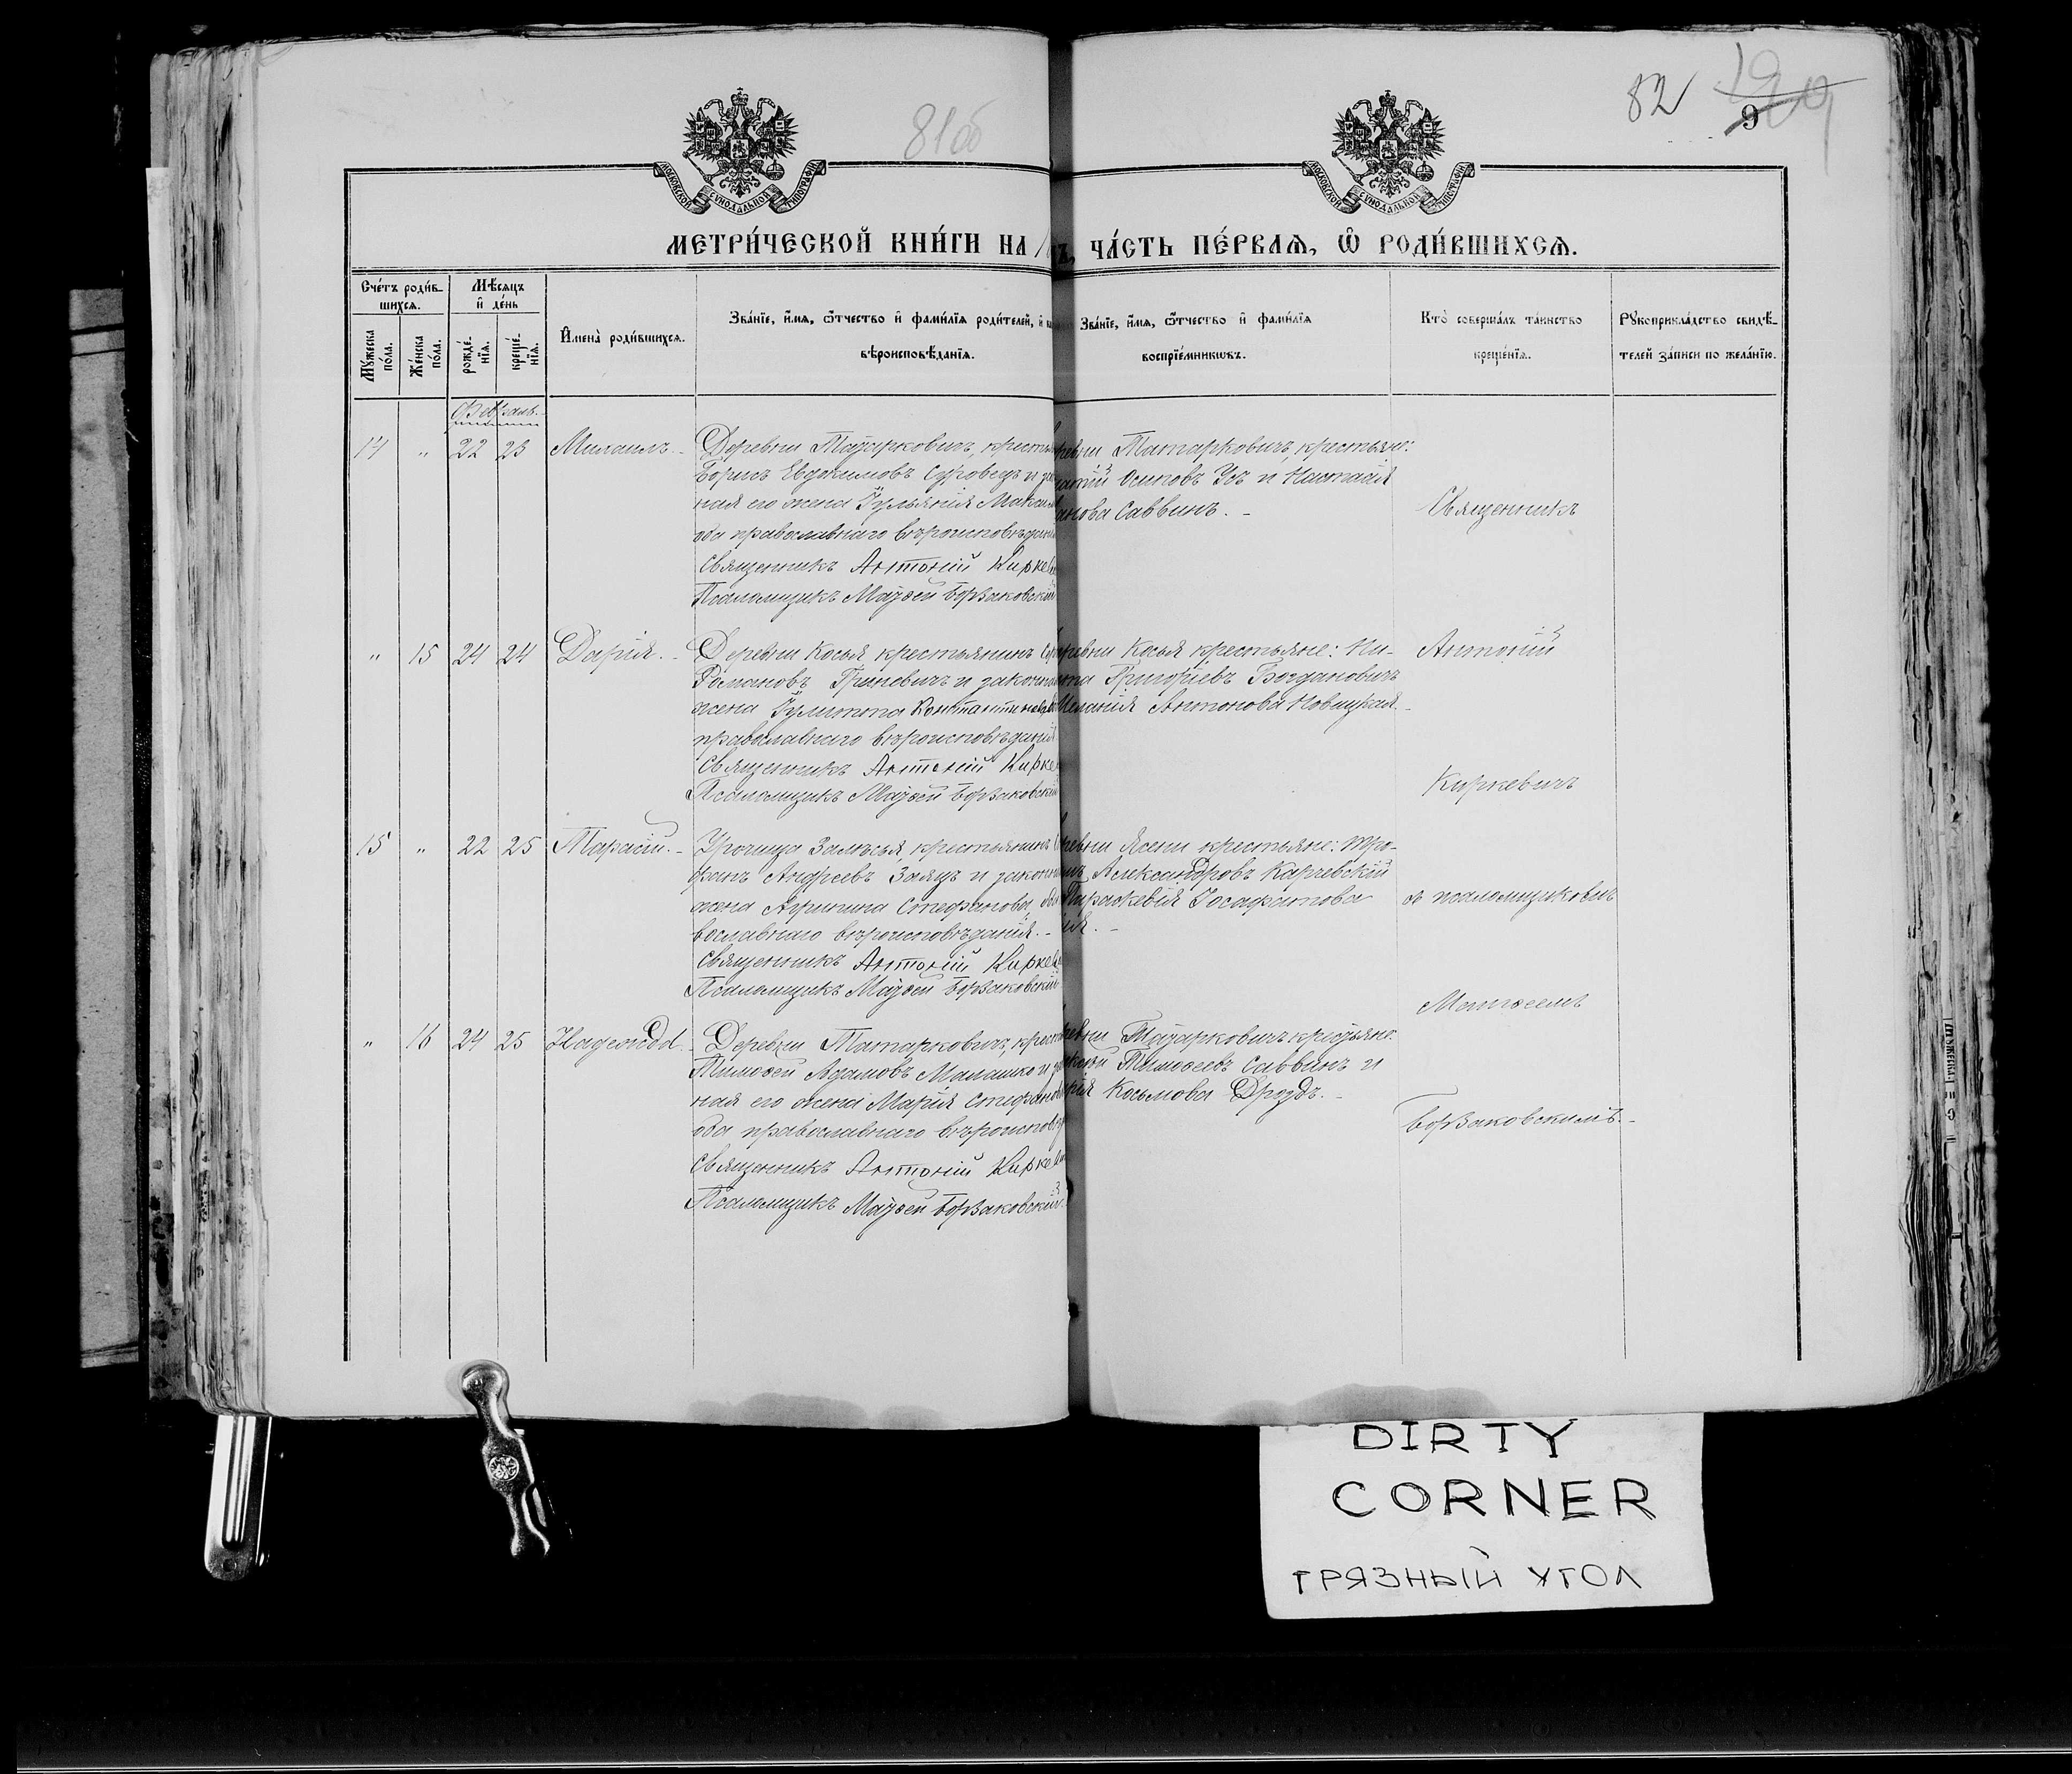 81об
82
9
МОСКОВСКОЙ СУНОДАЛЬНОЙ ТИПОГРАФІИ
МОСКОВСКОЙ СУНОДАЛЬНОЙ ТИПОГРАФІИ
МЕТРИ́ЧЕСКОЙ КНИ́ГИ НА
ЧА́СТЬ ПЕ́РВАѦ, Ѽ РОДИ́ВШИХСѦ.
Сче́тъ роди́в-
шихсѧ.
Мꙋ́жеска по́ла.
Же́нска по́ла.
Мѣ́сяцъ
и҆ де́нь
рожде́-нїѧ.
креще́-нїѧ.
И҆мена̀ роди́вшихсѧ.
Зва́нїе, и҆́мѧ, ѻ҆́тчество и҆ фами́лїѧ роди́телей, и҆
вѣроисповѣ́данїѧ.
Зва́нїе, и҆́мѧ, ѻ҆́тчество и҆ фами́лїѧ
воспрїе́мникѡвъ.
Кто̀ соверша́лъ та́инство
креще́нїѧ.
Рꙋкоприкла́дство свидѣ́-
телей за́писи по жела́нїю.
Февраль.
14 " 22 23 Михаилъ.
Деревни Татарковичъ, крестья
Борисъ Евдокимовъ Суровецъ и за
ная его жена Іульянія Максим
оба православнаго вѣроисповѣдані
Священникъ Антоній Кирке
Псаломщикъ Матѳей Борзаковскій
ревни Татарковичъ, крестьяне:
Осиповъ Усъ и Настасія
анова Саввинъ. -
" 15 24 24 Дарія.
Деревни Косья крестьянинъ
Романовъ Гриневичъ и законная
жена Іулитта Константинова
православнаго вѣроисповѣданія
Священникъ Антоній Кирке
Псаломщикъ Матѳей Борзаковскій
ревни Косья крестьяне: Ни-
кита Григорьевъ Богдановичъ
Меланія Антонова Новицкая.
15 " 22 25 Тарасій.
Урочища Залѣсья, крестьянинъ
фанъ Андреевъ Заяцъ и закон
жена Агрипина Стефанова, оба
вославнаго вѣроисповѣданія. -
Священникъ Антоній Кирке
Псаломщикъ Матѳей Борзаковскій
ревни Ясени крестьяне: Тро-
Александровъ Карчевскій
Параскевія Іосафатова
" 16 24 25 Надежда.
Деревни Татарковичъ, крест
Тимоѳей Адамовъ Малашко и за
ная его жена Марія Стефанов
оба православнаго вѣроисповѣд
Священникъ Антоній Кирке
Псаломщикъ Матѳей Борзаковскій.
ревни Татарковичъ крестьяне:
Тимоѳеевъ Саввинъ и
рія Косьмова Дроздъ. -
Священникъ
Антоній
Киркевичъ
съ псаломщикомъ
Матѳеемъ
Борзаковскимъ. -
DIRTY
CORNER
ГРЯЗНЫЙ УГОЛ